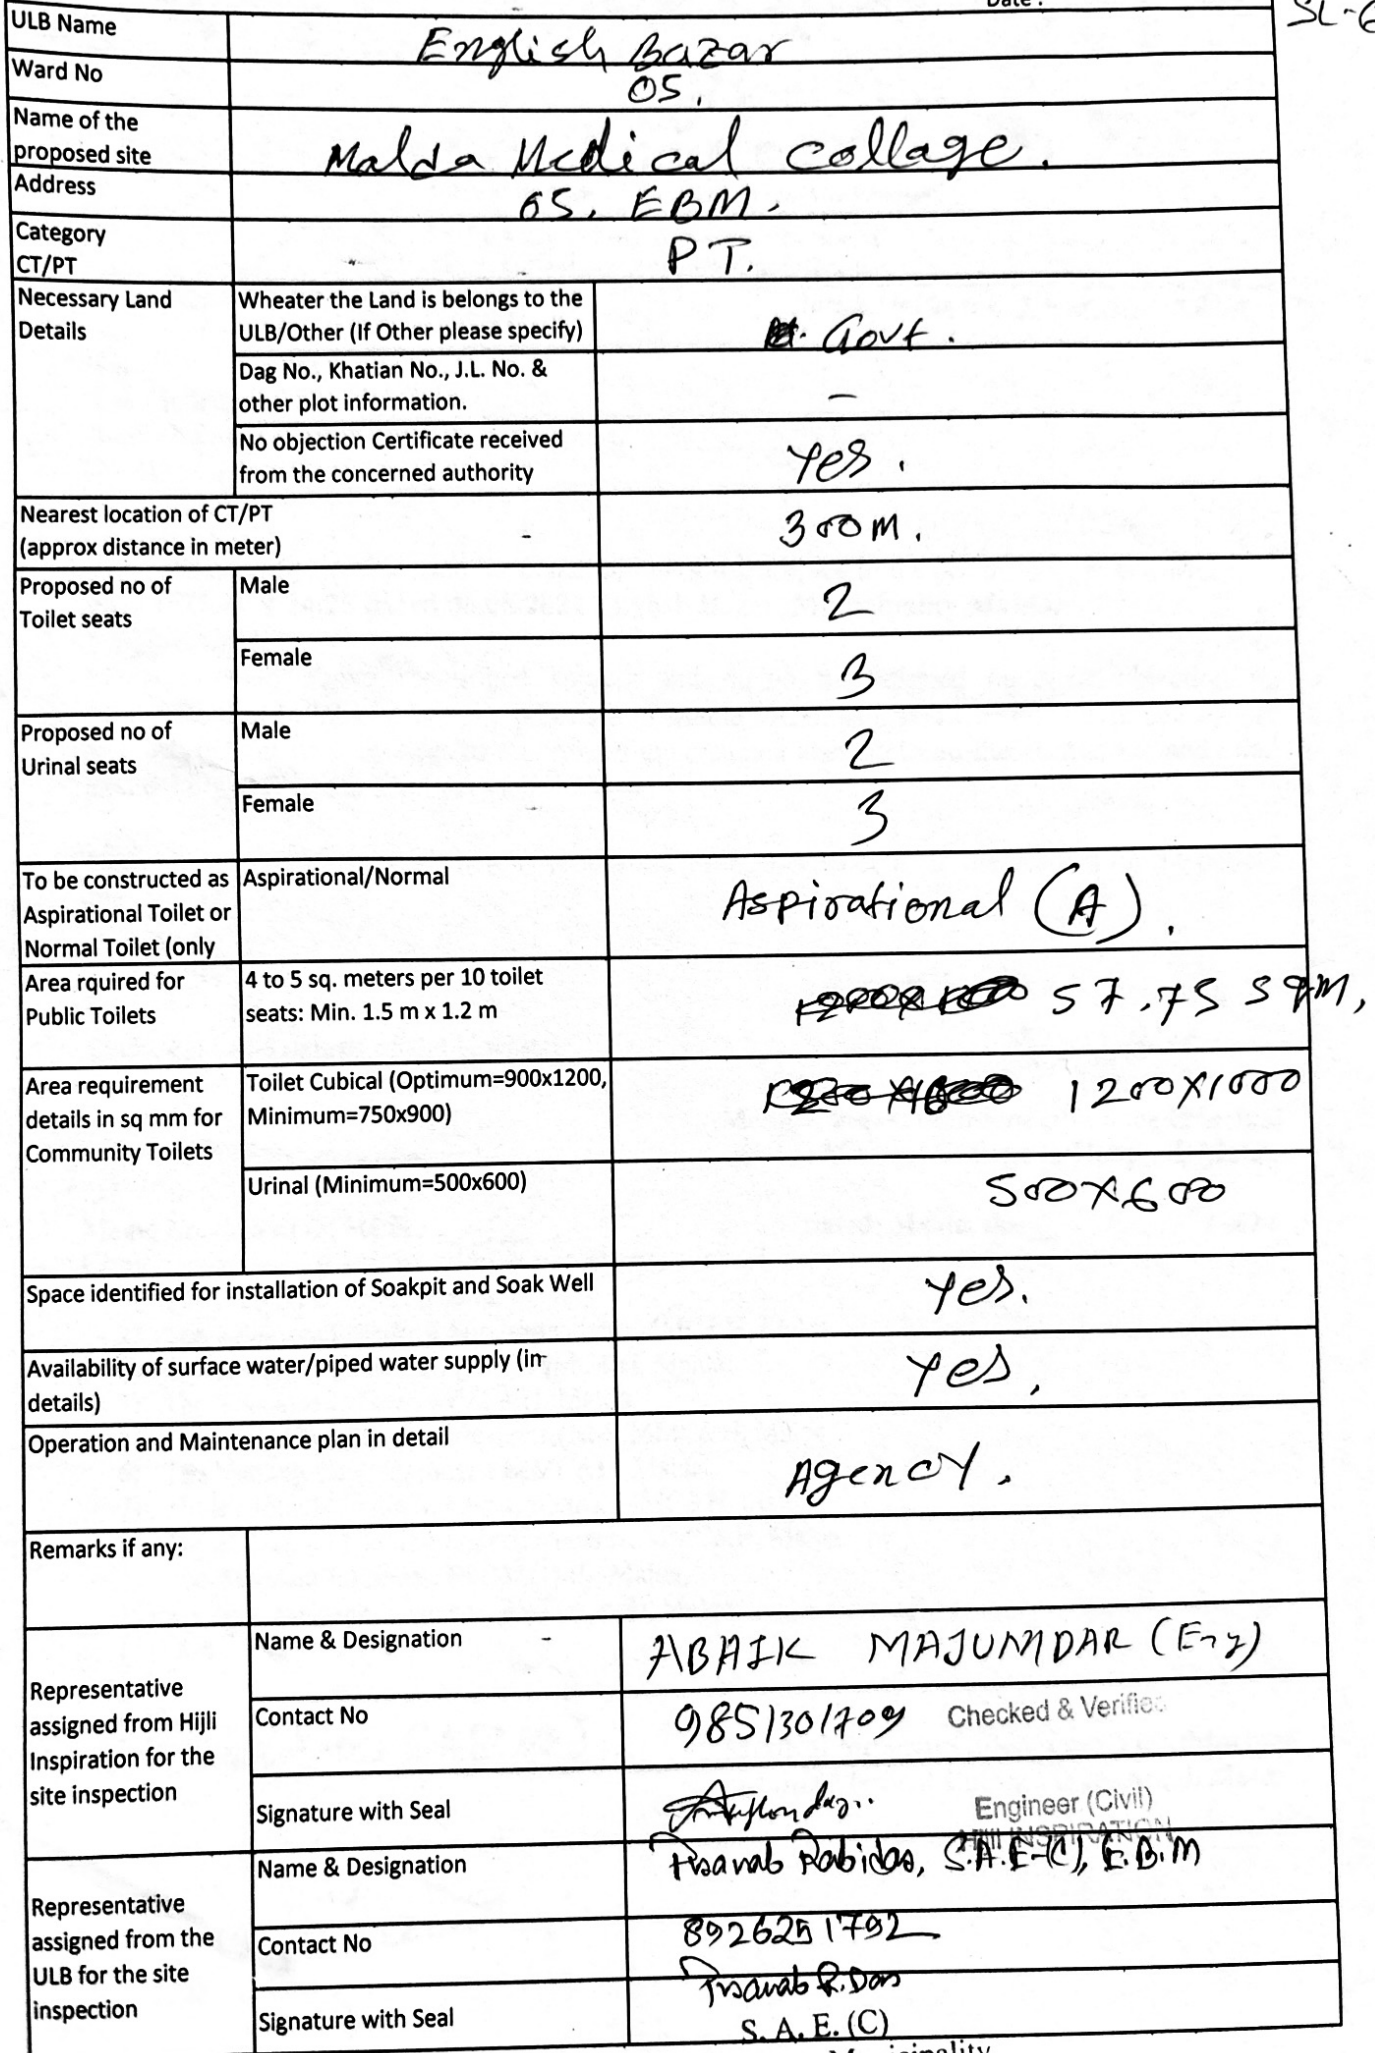 Date :
SL-6
ULB Name
English Bazar
Ward No
05.
Name of the
proposed site
Malda Medical Collage.
Address
05, EBM.
Category
CT/PT
PT.
Necessary Land
Details
Wheater the Land is belongs to the
ULB/Other (If Other please specify)
Govt.
Dag No., Khatian No., J.L. No. &
other plot information.
–
No objection Certificate received
from the concerned authority
Yes.
Nearest location of CT/PT
(approx distance in meter)
300M.
Proposed no of
Toilet seats
Male
2
Female
3
Proposed no of
Urinal seats
Male
2
Female
3
To be constructed as
Aspirational Toilet or
Normal Toilet (only
Aspirational/Normal
Aspirational (A).
Area rquired for
Public Toilets
4 to 5 sq. meters per 10 toilet
seats: Min. 1.5 m x 1.2 m
57.75 SqM,
Area requirement
details in sq mm for
Community Toilets
Toilet Cubical (Optimum=900x1200,
Minimum=750x900)
1200X1000
Urinal (Minimum=500x600)
500X600
Space identified for installation of Soakpit and Soak Well
Yes.
Availability of surface water/piped water supply (in
details)
Yes,
Operation and Maintenance plan in detail
Agency.
Remarks if any:
Representative
assigned from Hijli
Inspiration for the
site inspection
Name & Designation
ABAIK MAJUMDAR (Eng)
Contact No
9851301709
Checked & Verified
Signature with Seal
Engineer (Civil)
HIJLI INSPIRATION
Representative
assigned from the
ULB for the site
inspection
Name & Designation
Pranab Rabidas, S.A.E-(C), E.B.M
Contact No
8926251792
Signature with Seal
Pranab R. Das
S. A. E. (C)
Municipality